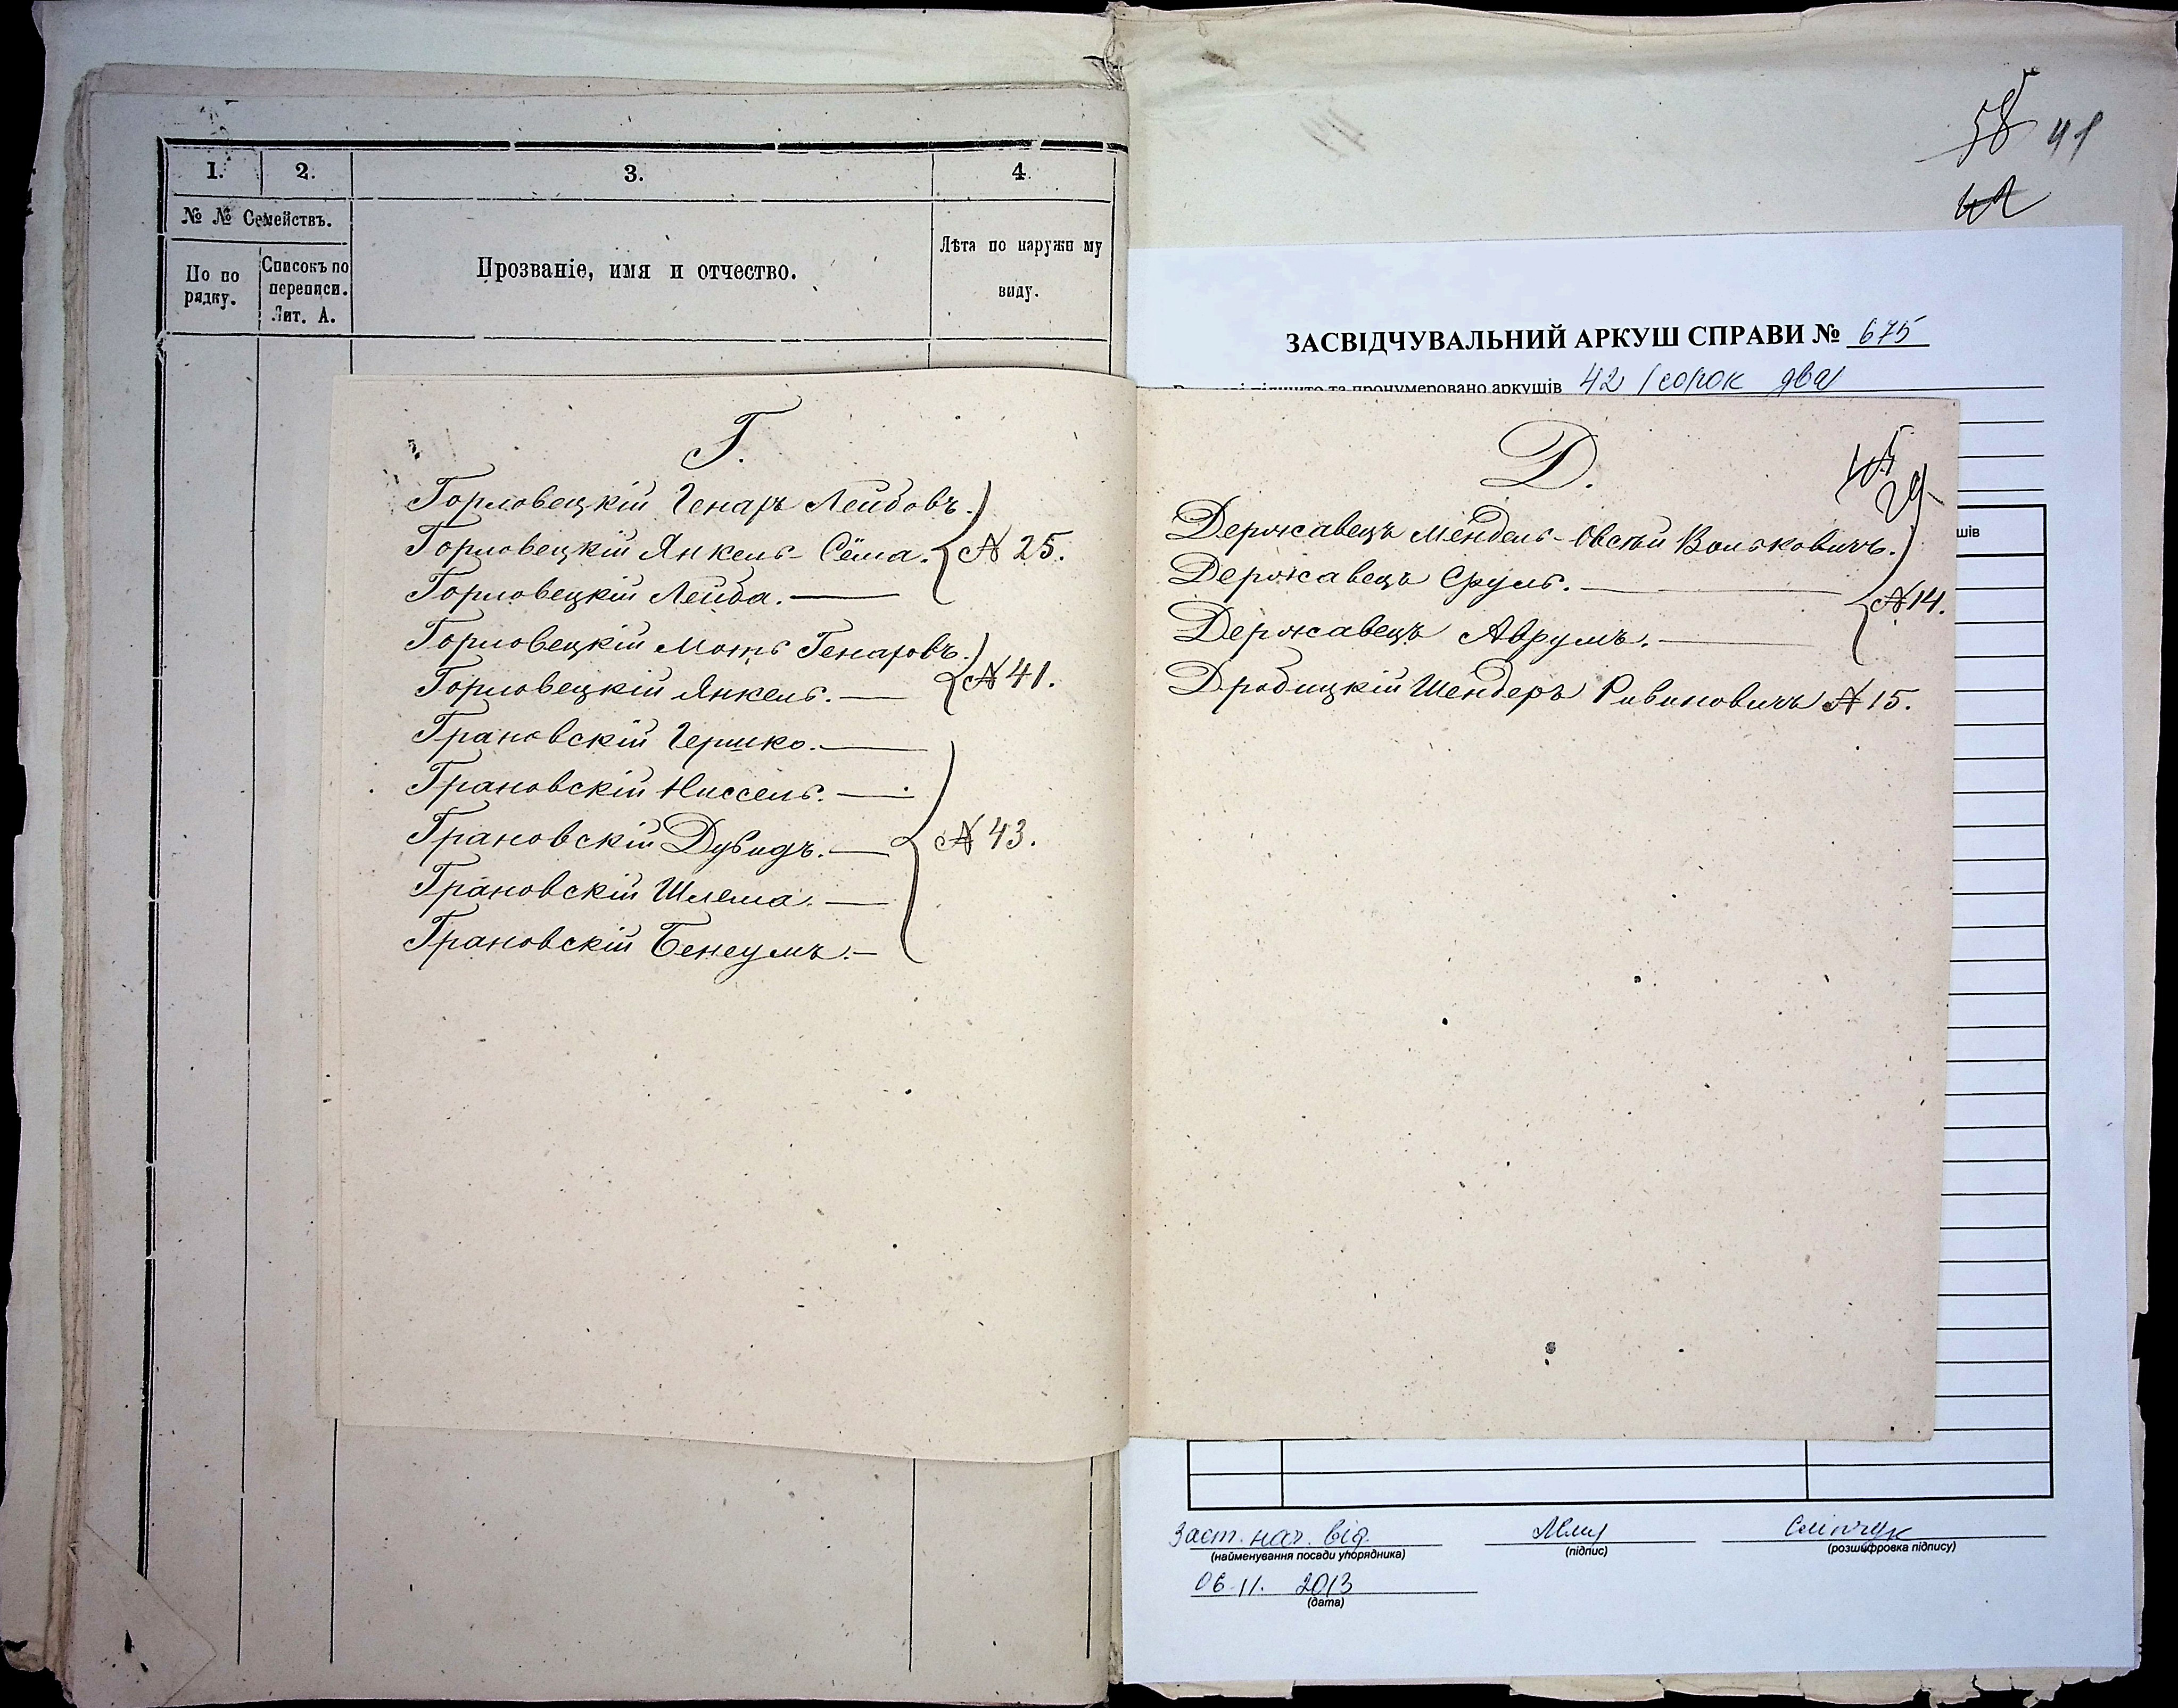 1.
2.
3.
4.
№ № Семействъ.
По по рядку.
Списокъ по переписи. Лит. А.
Прозваніе, имя и отчество.
Лѣта по наружн му виду.
Г.
Горловецкій Генаръ Лейбовъ.
Горловецкій Янкель-Сёма.
№ 25.
Горловецкій Лейба.
Горловецкій Моть Генаровъ.
№ 41.
Горловецкій Янкель.
Грановскій Гершко.
Грановскій Ниссель.
Грановскій Дувидъ.
№ 43.
Грановскій Шлема.
Грановскій Бенеумъ.
58 41
ЗАСВІДЧУВАЛЬНИЙ АРКУШ СПРАВИ № 675
підшито та пронумеровано аркушів 42 /сорок два/
Д.
29
Державецъ Мендель-Овсѣй Вольковичъ.
Державецъ Сруль.
№ 14.
Державецъ Аврумъ.
Дробицкій Шендеръ Рувиновичъ № 15.
шів
Заст. нач. від.
(найменування посади упорядника)
(підпис)
(розшифровка підпису)
06.11. 2013
(дата)